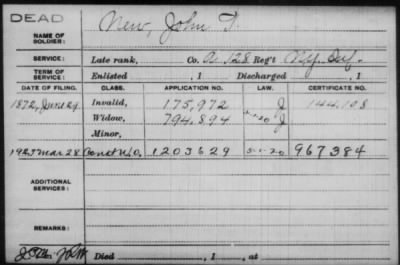 DEAD
NAME OF SOLDIER: New, John T.
SERVICE: Late rank, Co. A. 128 Reg't N.Y. Inf.
TERM OF SERVICE: Enlisted , 1 Discharged , 1
DATE OF FILING. CLASS. APPLICATION NO. LAW. CERTIFICATE NO.
1872, June 29 Invalid, 175,972 J 144,108
Widow, 794,894 J
Minor,
Mar 28 1203629 5-1-20 967384
ADDITIONAL SERVICES:
REMARKS:
Died , 1 , at